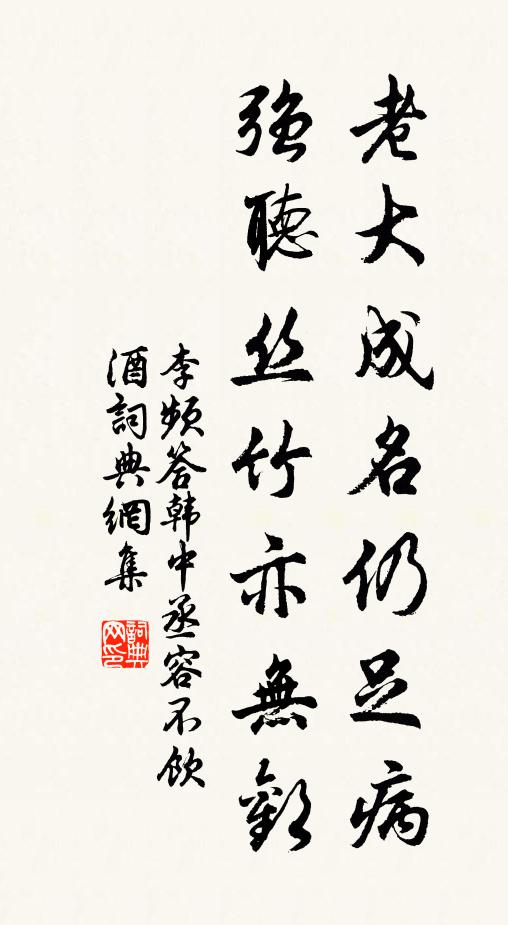 老大成名仍足病
強聽丝竹亦無歡
李频答韩中丞容不饮
酒詞典網集
詞典
网印